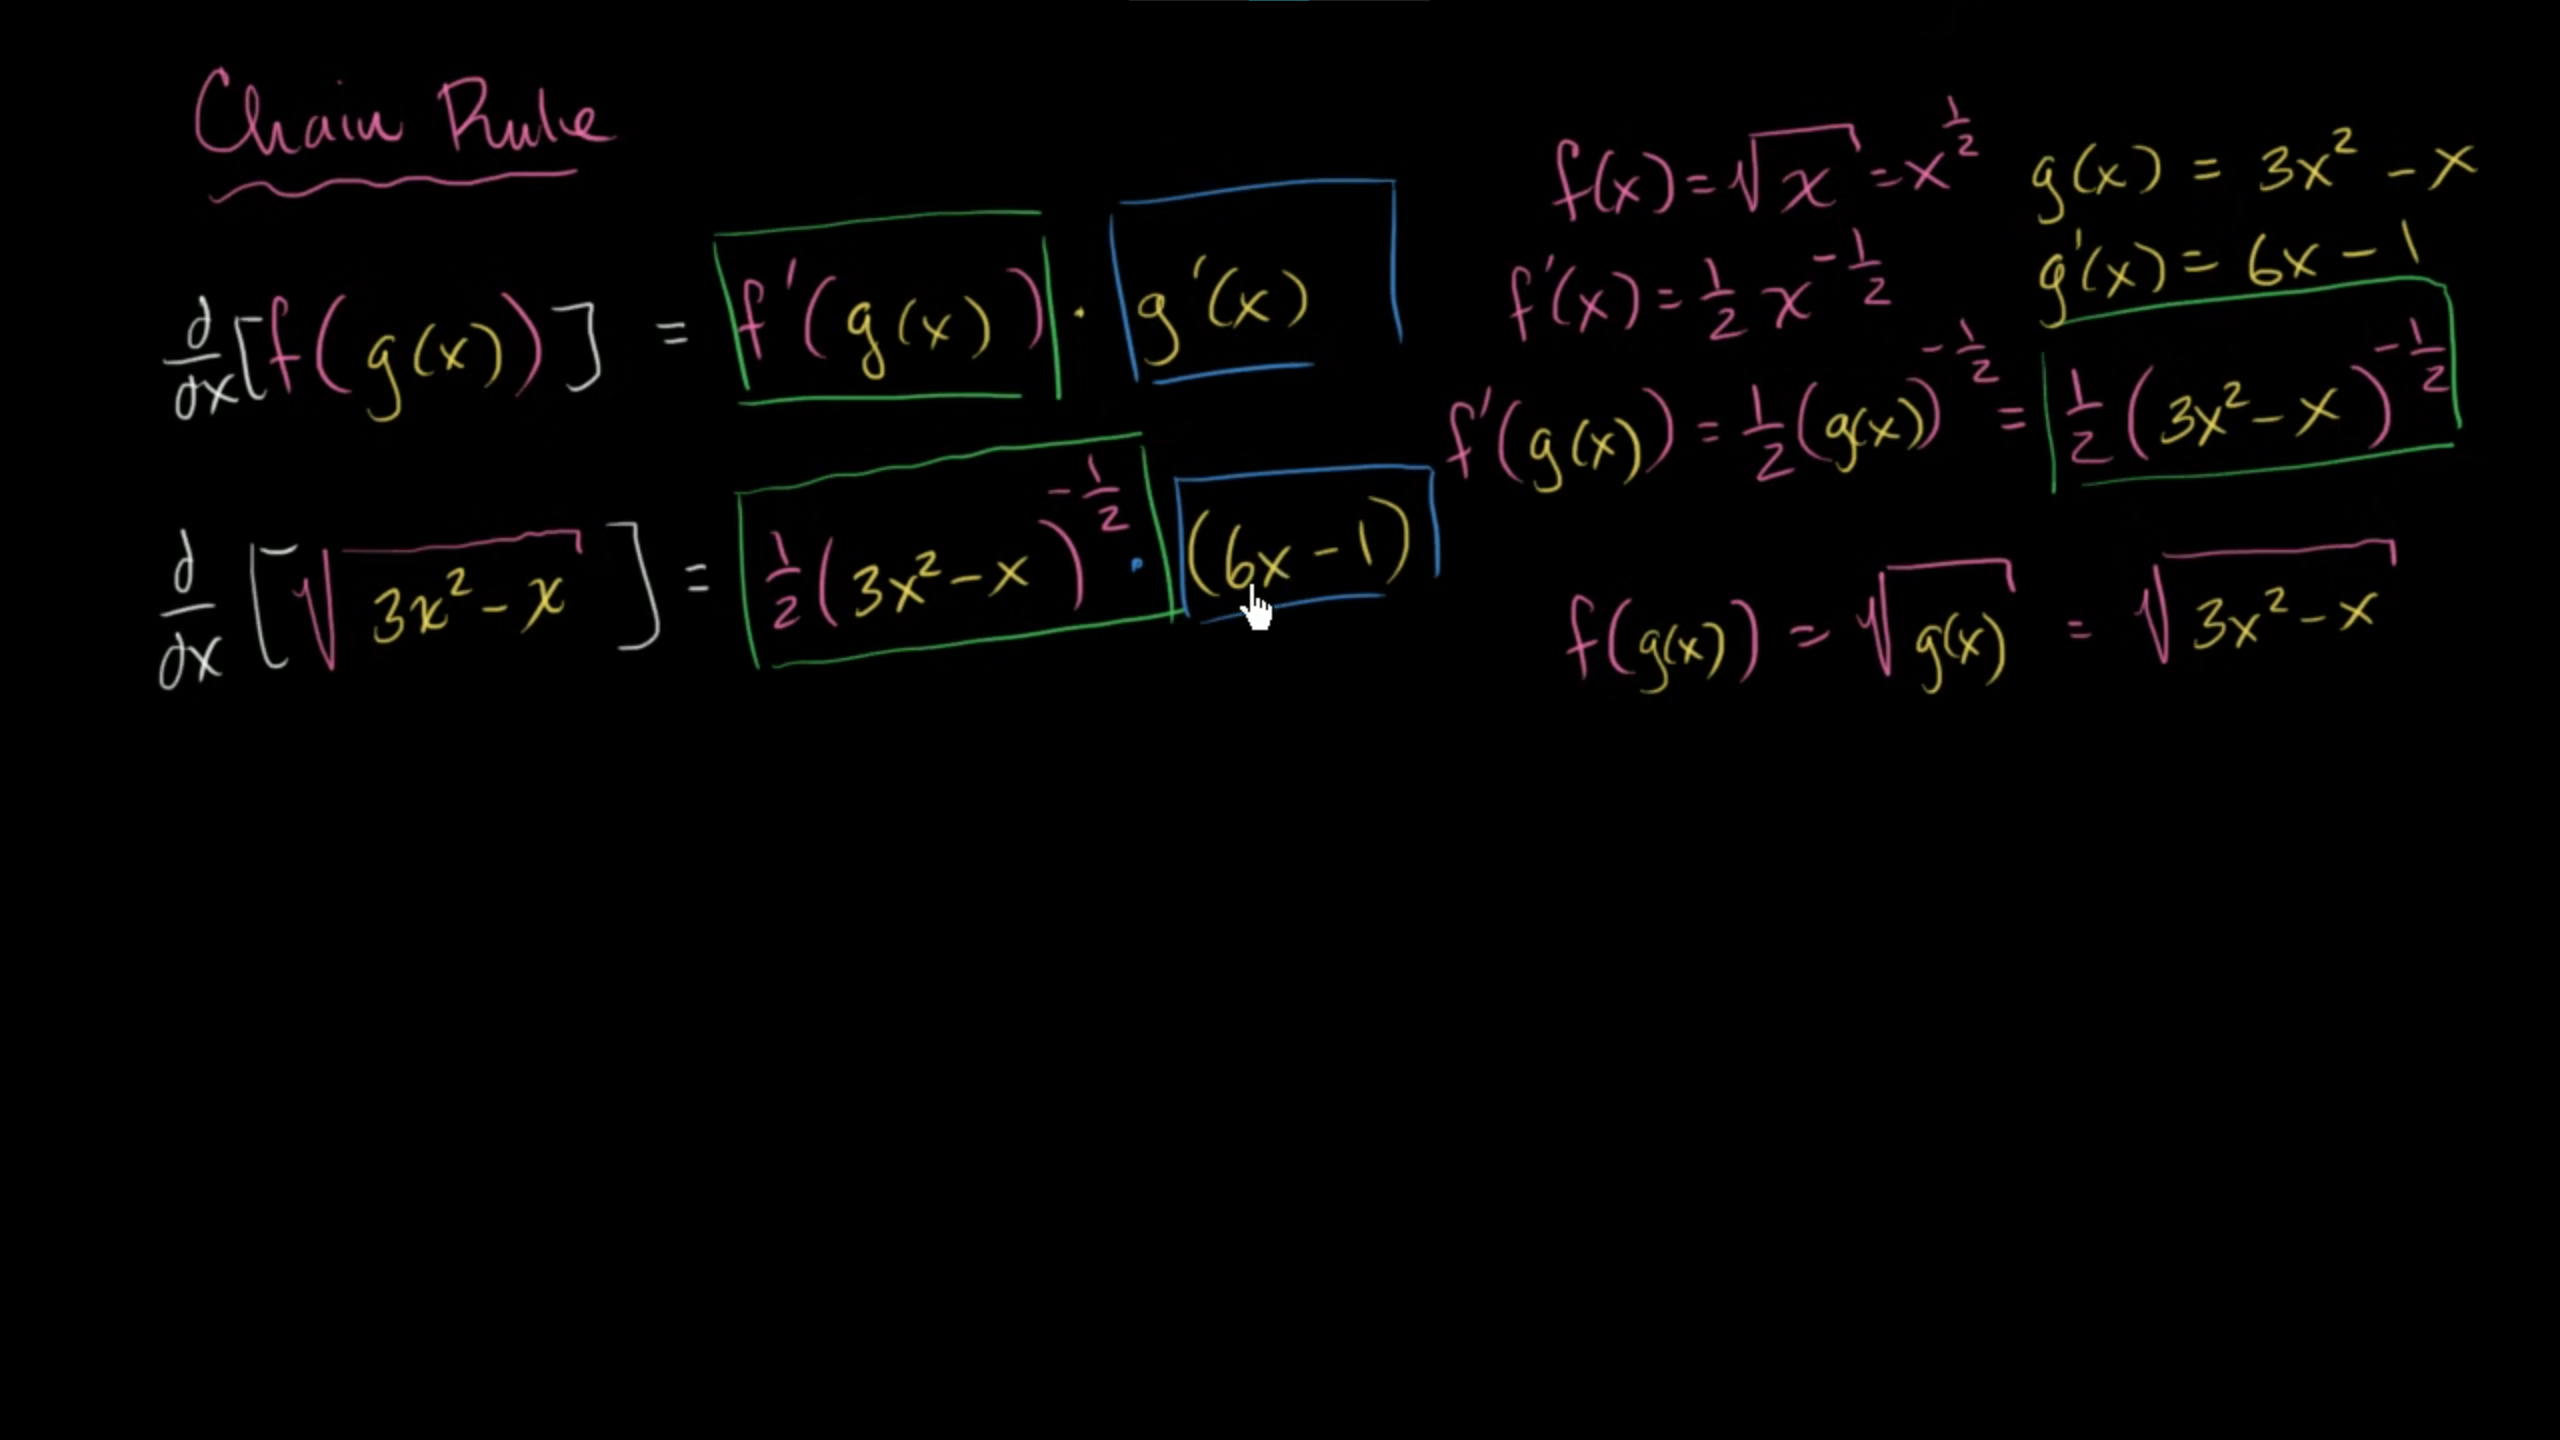 Chain Rule
d/dx [f(g(x))] = f'(g(x)) · g'(x)
d/dx [√(3x² - x)] = 1/2 (3x² - x)^(-1/2) · (6x - 1)
f(x) = √x = x^(1/2)
g(x) = 3x² - x
f'(x) = 1/2 x^(-1/2)
g'(x) = 6x - 1
f'(g(x)) = 1/2 (g(x))^(-1/2) = 1/2 (3x² - x)^(-1/2)
f(g(x)) = √g(x) = √(3x² - x)